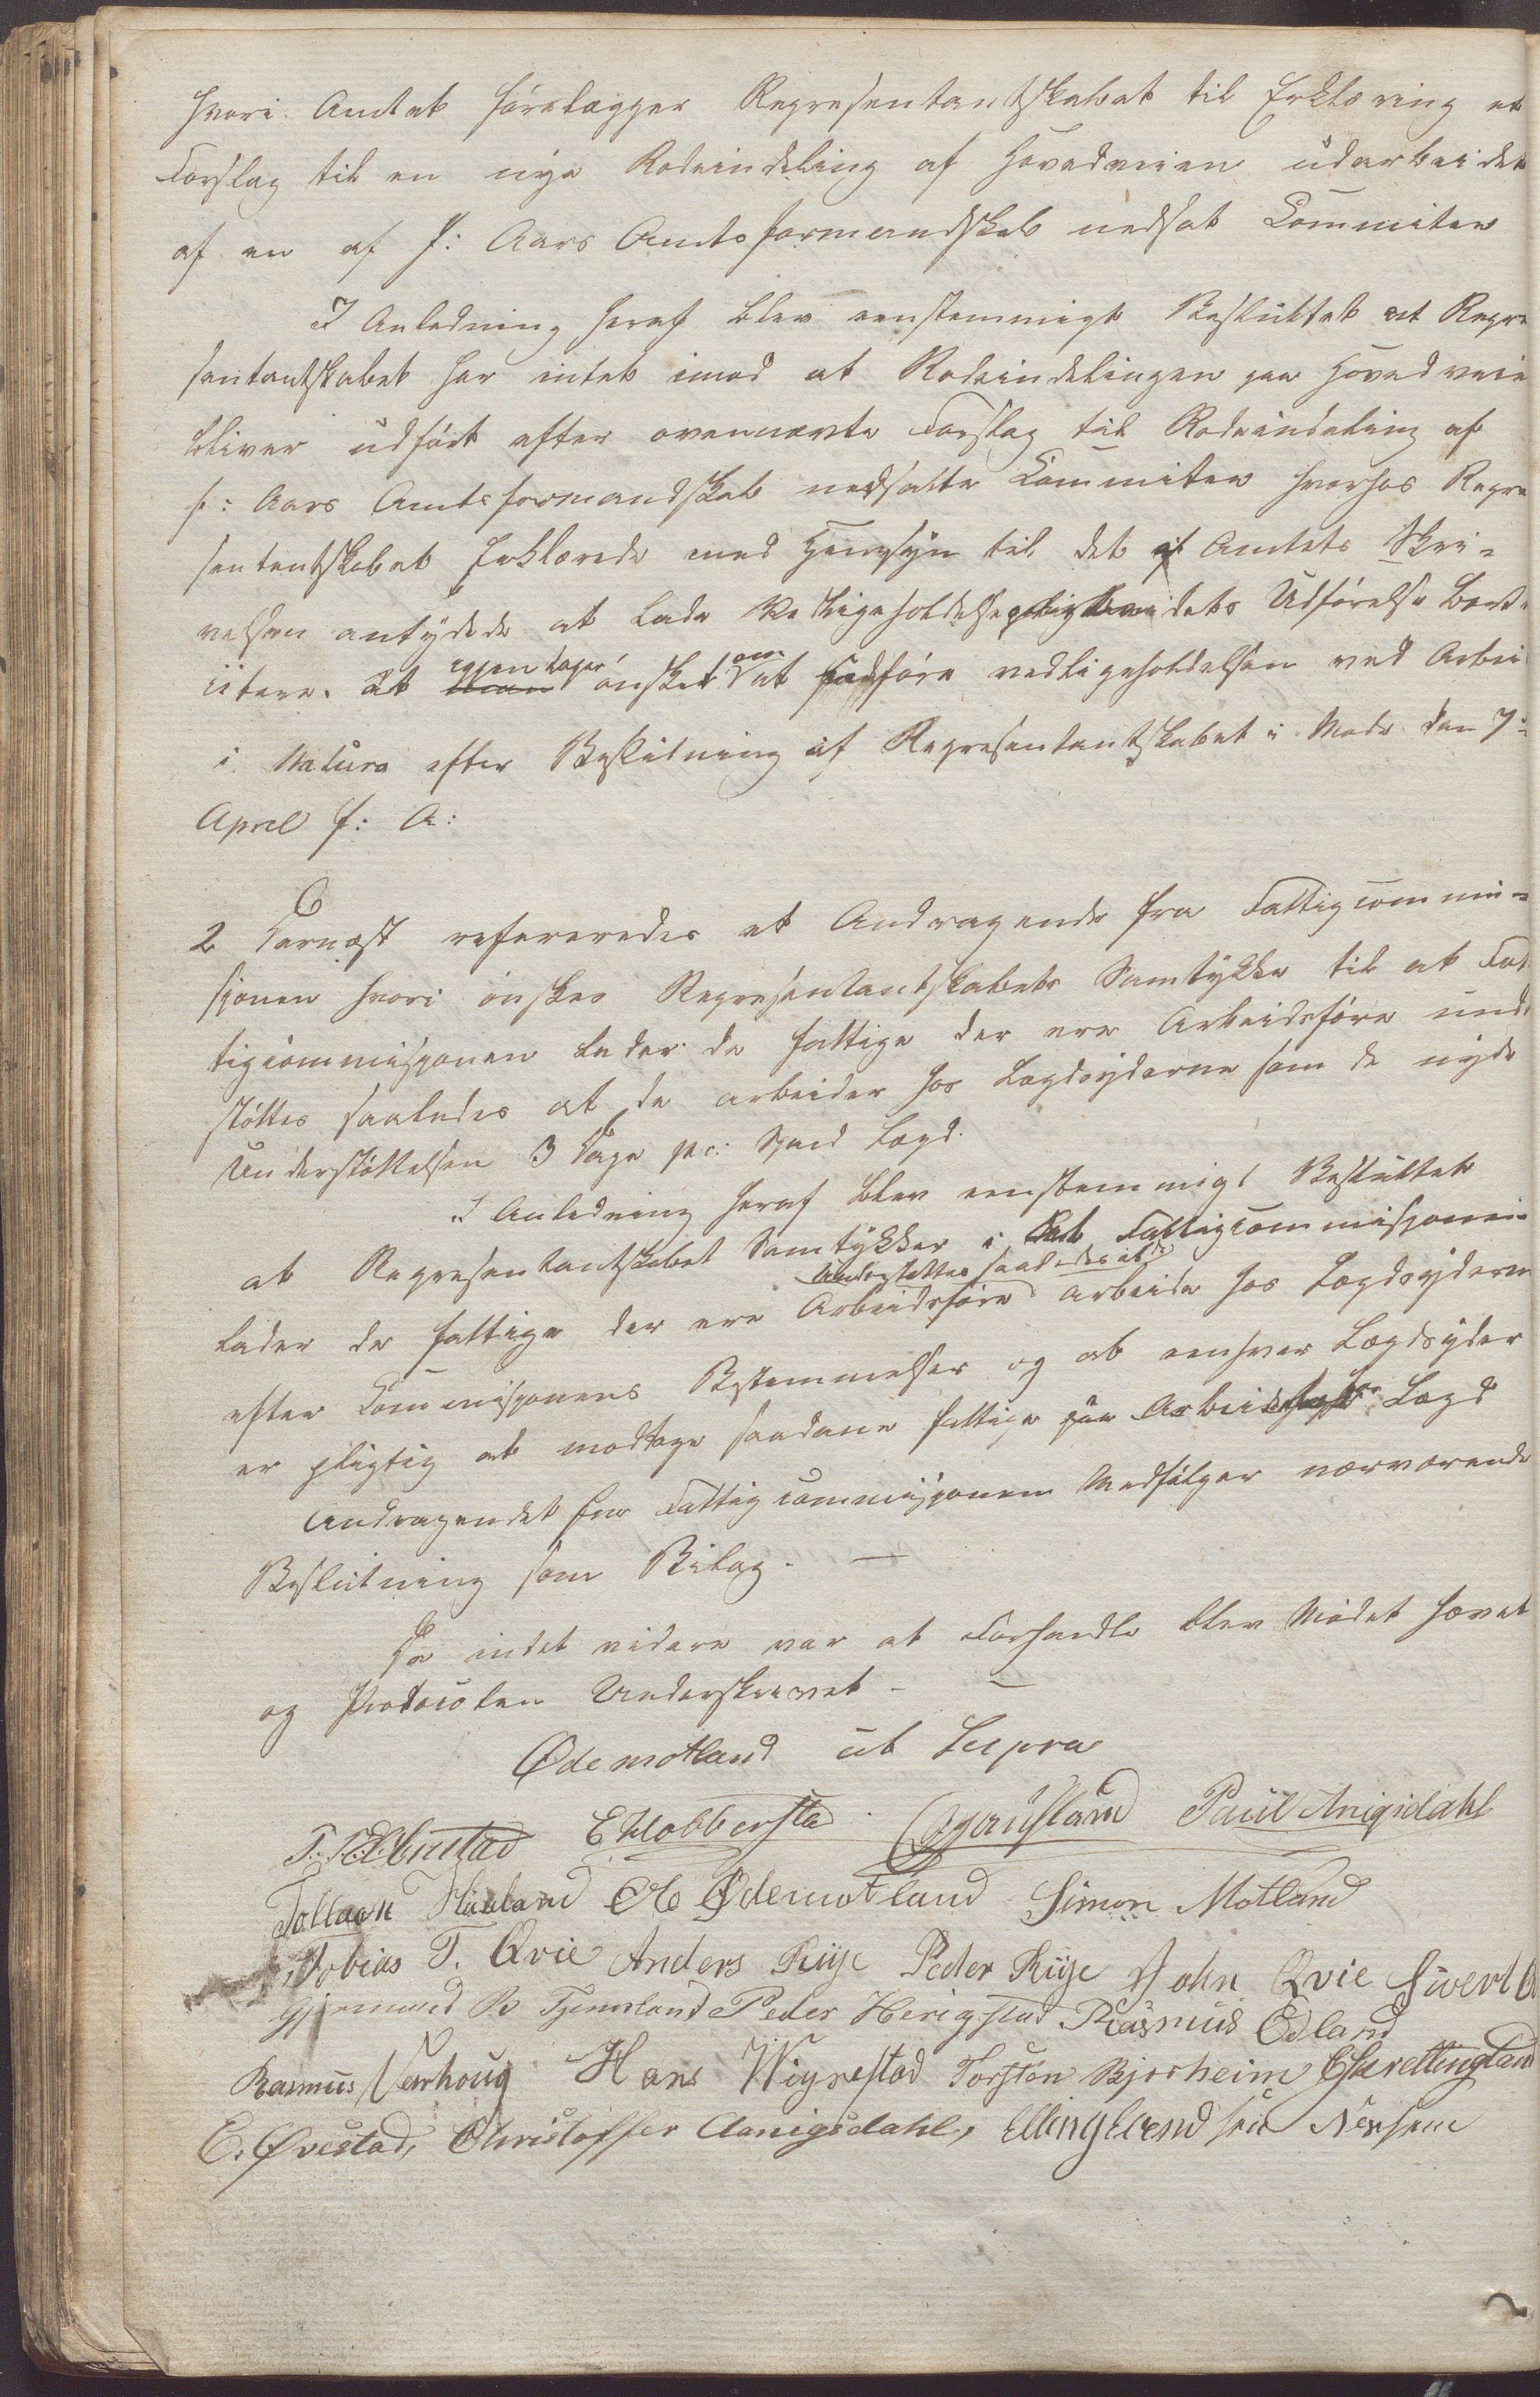 hvori Amtet forelægger Representantskabet til Erklæring et
Forslag til en nye Rodeindeling af Hovedveien udarbeidet
af en af f: Aars Amtsformandskab nedsat Commitee
I Anledning heraf blev eenstemmigt Besluttet at Repre
sentantskabet har intet imod at Rodeindelingen paa Hovedveie
bliver udført efter ovennævte Forslag til Rodeindeling af
f: Aars Amtsformandskab nedsatte Commitee hvorhos Repre
sentantskabet Erklærede med Hensyn til det af Amtets Skri-
velsen antydede at lade Vedligeholdelse dets Udførelse Bort
at ønsker om at udføre vedligeholdelsen ved Arbei
i Natura efter Beslutning af Representantskabet i Møde den 7de
April f: A:
2 Dernæst refereredes et Andragende fra Fattigcommi-
sjonen hvori ønskes Representantskabets Samtykke til at Fat
tigcommisjonen lader de fattige der ere Arbeidsføre unde
støttes saaledes at de arbeider hos Lægdsyderne som de nyde
Understøttelsen 3 Dage pr: Spand Lægd.
I Anledning heraf blev eenstemmigt Besluttet
at Representantskabet Samtykker i at Fattigcommisjonen
Understøttes saaledes at
lader de fattige der ere Arbeidsføre arbeide hos Lægdsyderne
efter Commisjonens Bestemmelser og at eenhver Lægdsyder
er pligtig at modtage saadane fattige paa Lægd
Andragendet fra Fattigcommisjonen Medfølger nærværende
Beslutning som Bilag. —
Da intet videre var at Forhandle blev Mødet hævet
og Protocolen Underskrevet —
Ødemotland ut Supra
E Hobberstad Paul Anigsdahl
Tollaon Haaland Ødemotland Simon Motland
Tobias T. Qvie Anders Riije Peder Riije John Qvie Sivert
B Tjemsland Peder Herigstad Rasmus Edland
Rasmus Varhoug Hans Wigrestad Torsten Bjorheim E Skretting
E. Øvestad, Christoffer Aanigsdahl,